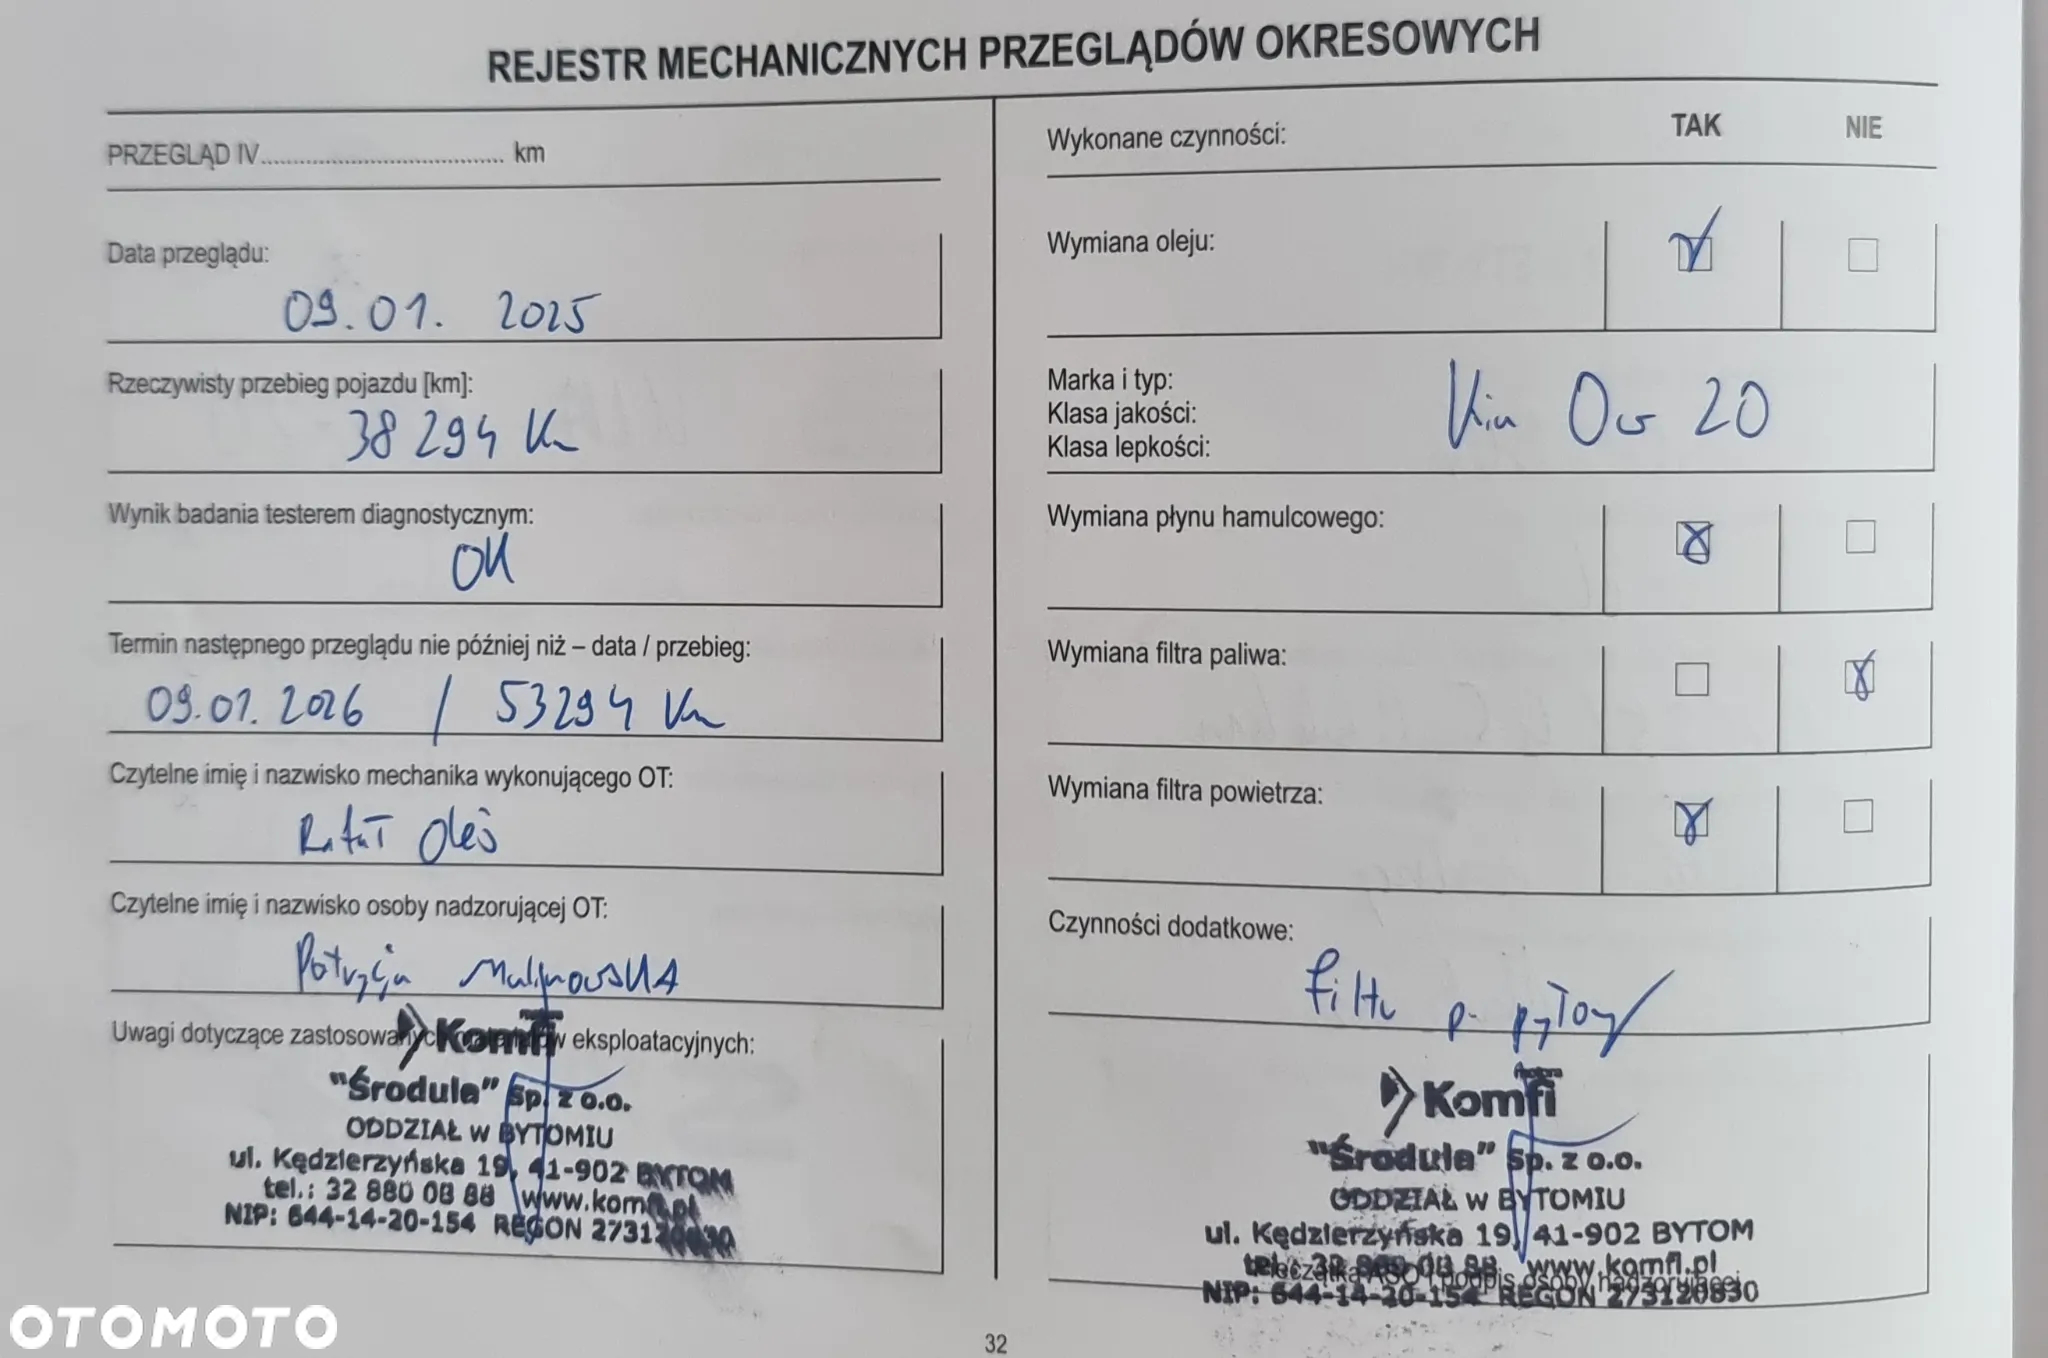 REJESTR MECHANICZNYCH PRZEGLĄDÓW OKRESOWYCH
PRZEGLĄD IV...................................... km
Data przeglądu:
09.01. 2025
Rzeczywisty przebieg pojazdu [km]:
38 294 Km
Wynik badania testerem diagnostycznym:
OK
Termin następnego przeglądu nie później niż – data / przebieg:
09.01.2026 / 53294 Km
Czytelne imię i nazwisko mechanika wykonującego OT:
Rafał Oleś
Czytelne imię i nazwisko osoby nadzorującej OT:
Patrycja Malinowska
Uwagi dotyczące zastosowanych eksploatacyjnych:
Komfi
"Środula" Sp. z o.o.
ODDZIAŁ w BYTOMIU
ul. Kędzierzyńska 19, 41-902 BYTOM
tel.: 32 880 08 88 www.komfi.pl
NIP: 644-14-20-154 REGON 273120830
Wykonane czynności: TAK NIE
Wymiana oleju:
Marka i typ:
Klasa jakości:
Klasa lepkości:
Kia 0w 20
Wymiana płynu hamulcowego:
Wymiana filtra paliwa:
Wymiana filtra powietrza:
Czynności dodatkowe:
filtr p. pyłowy
Komfi
"Środula" Sp. z o.o.
ODDZIAŁ w BYTOMIU
ul. Kędzierzyńska 19, 41-902 BYTOM
tel.: 32 880 08 88 www.komfi.pl
Pieczątka ASO i podpis osoby nadzorującej
NIP: 644-14-20-154 REGON 273120830
32
OTOMOTO